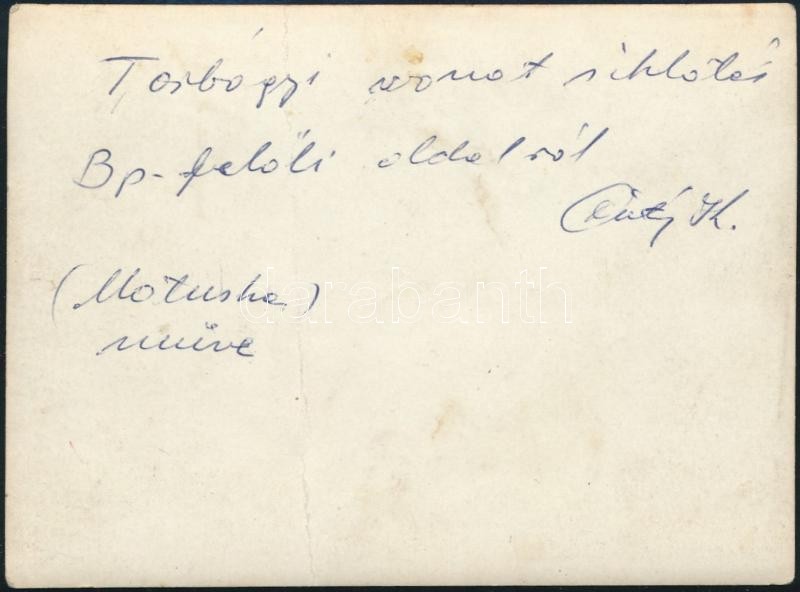 Torbágyi vonat siklatás
Bp-felöli oldalról
K.
(Matuska)
müve
darabanth